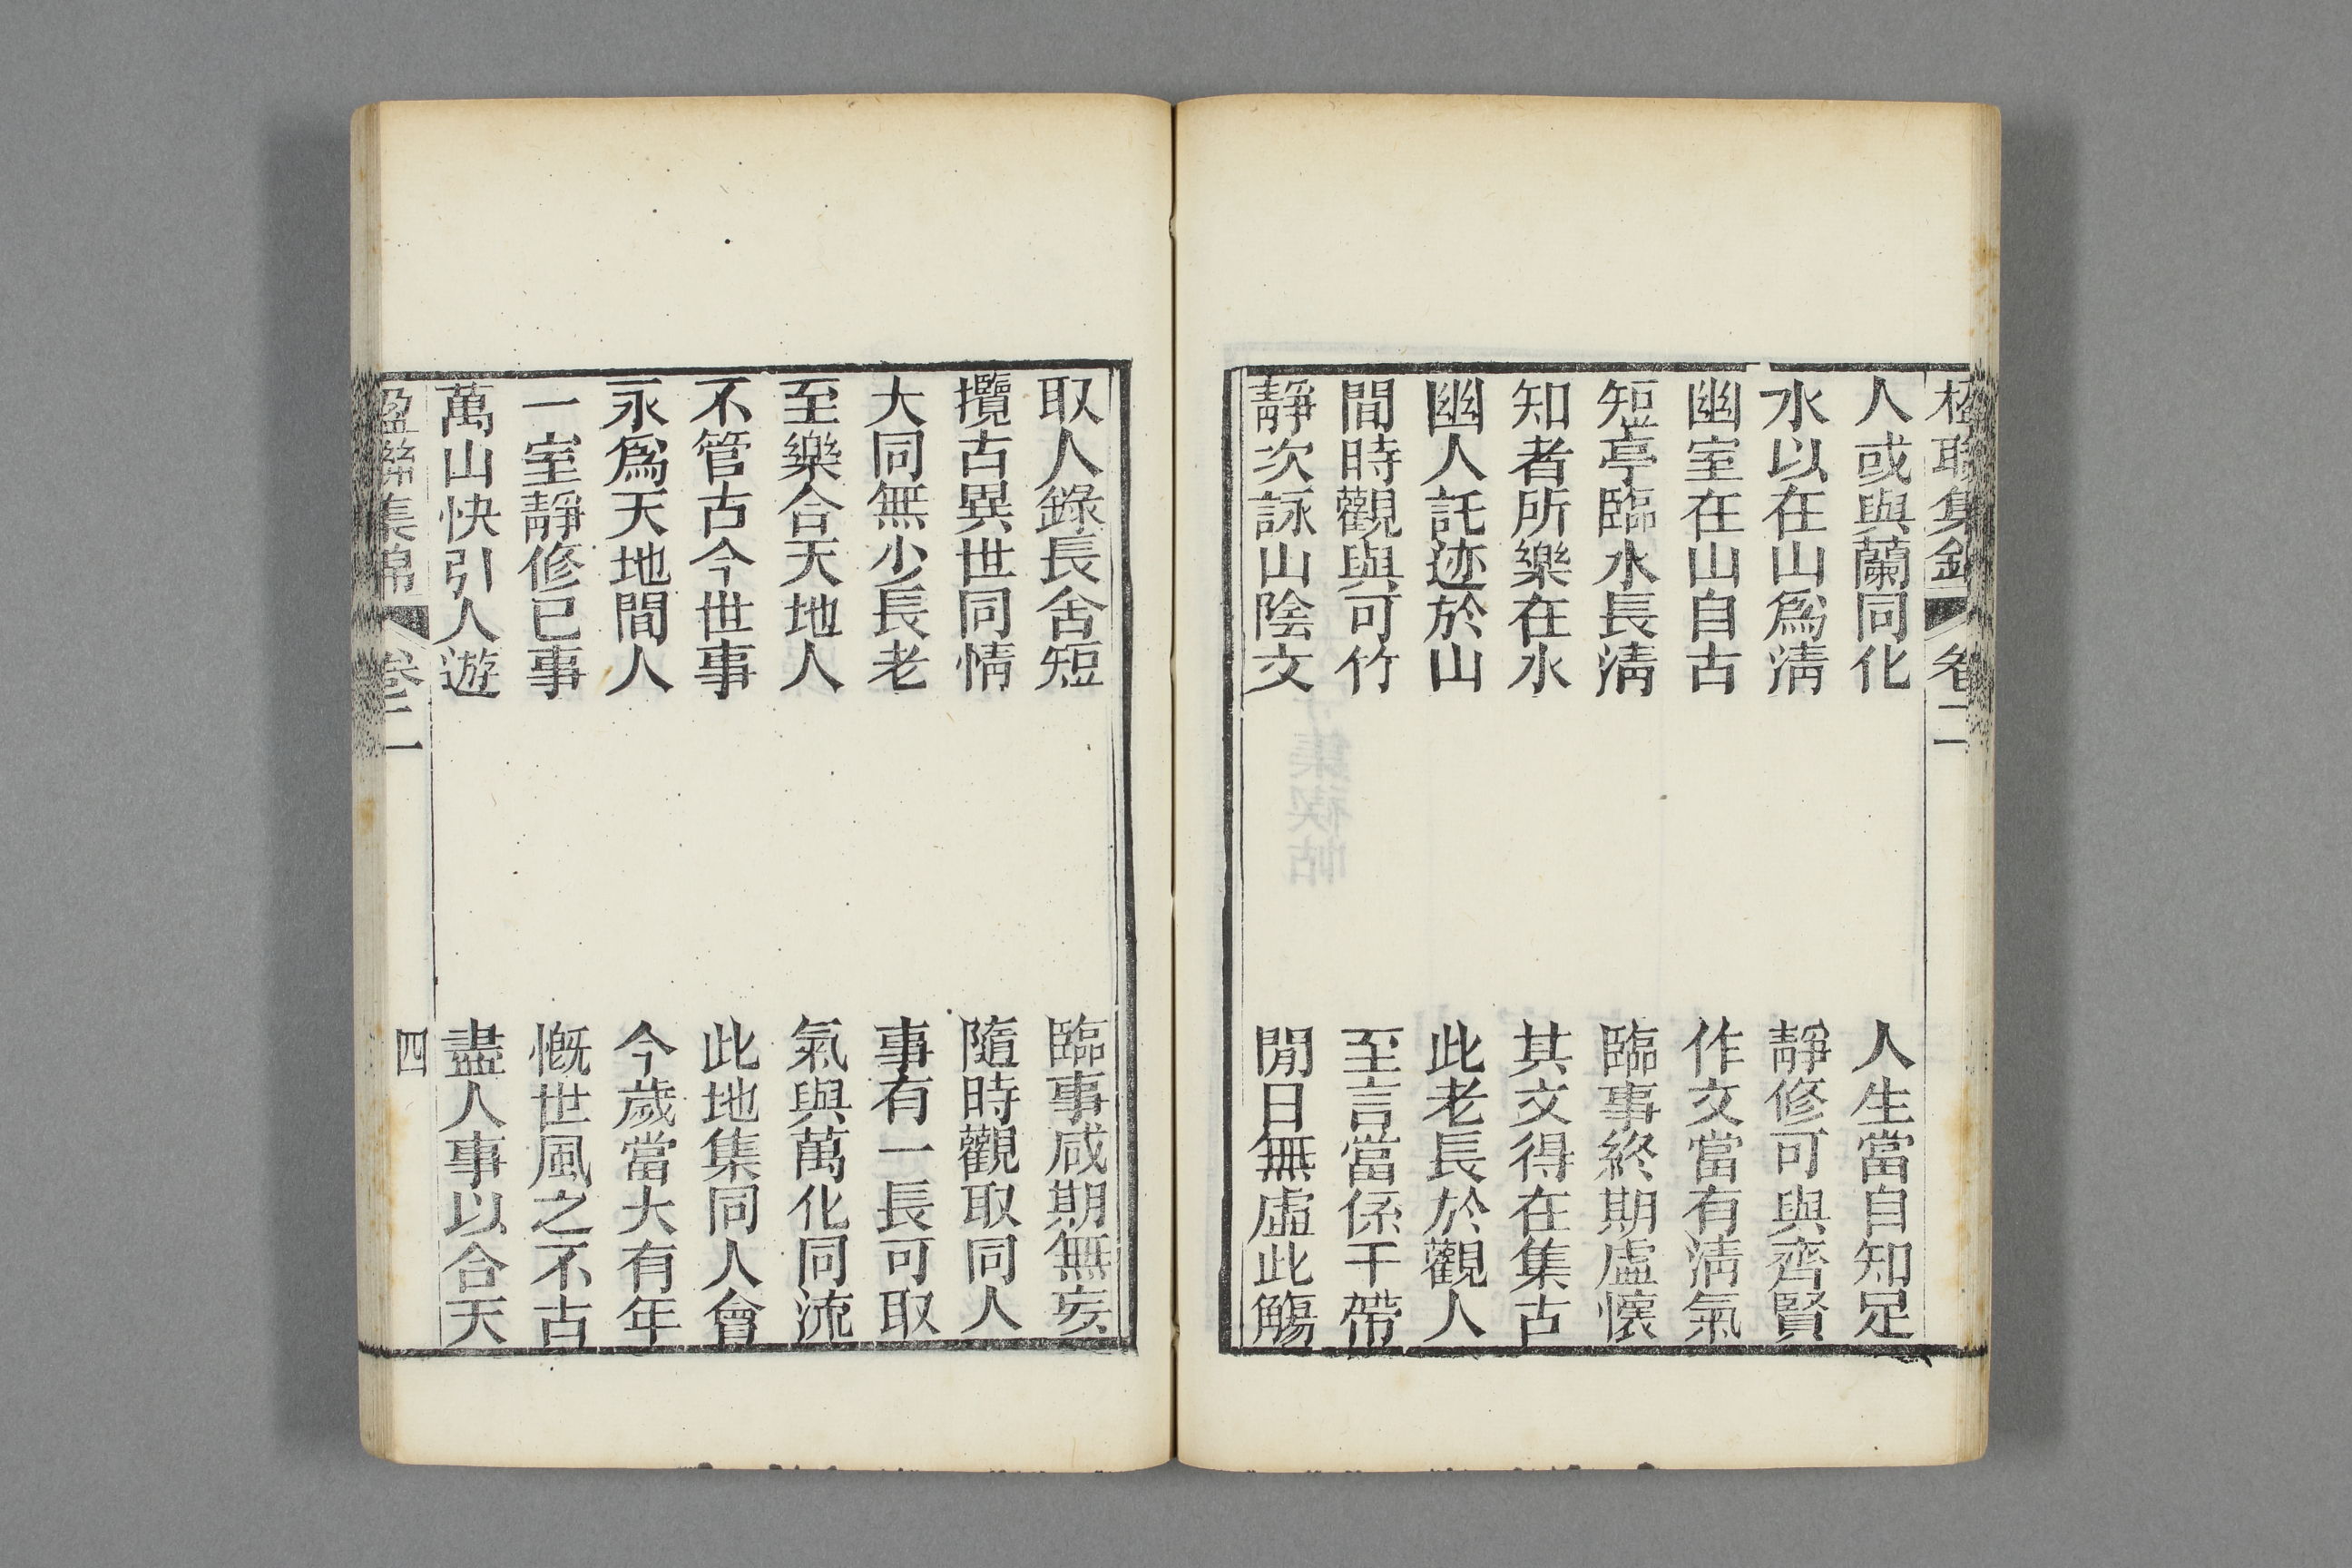 楹聯集錦 卷二
人或與蘭同化 人生當自知足
水以在山爲淸 靜修可與齊賢
幽室在山自古 作文當有淸氣
短亭臨水長淸 臨事終期虛懷
知者所樂在水 其文得在集古
幽人託迹於山 此老長於觀人
閒時觀與可竹 至言當係干帶
靜次詠山陰文 閒日無虛此觴
取人錄長舍短 臨事咸期無妄
攬古異世同情 隨時觀取同人
大同無少長老 事有一長可取
至樂合天地人 氣與萬化同流
不管古今世事 此地集同人會
永爲天地間人 今歲當大有年
一室靜修已事 慨世風之不古
萬山快引人遊 盡人事以合天
楹聯集錦 卷二 四